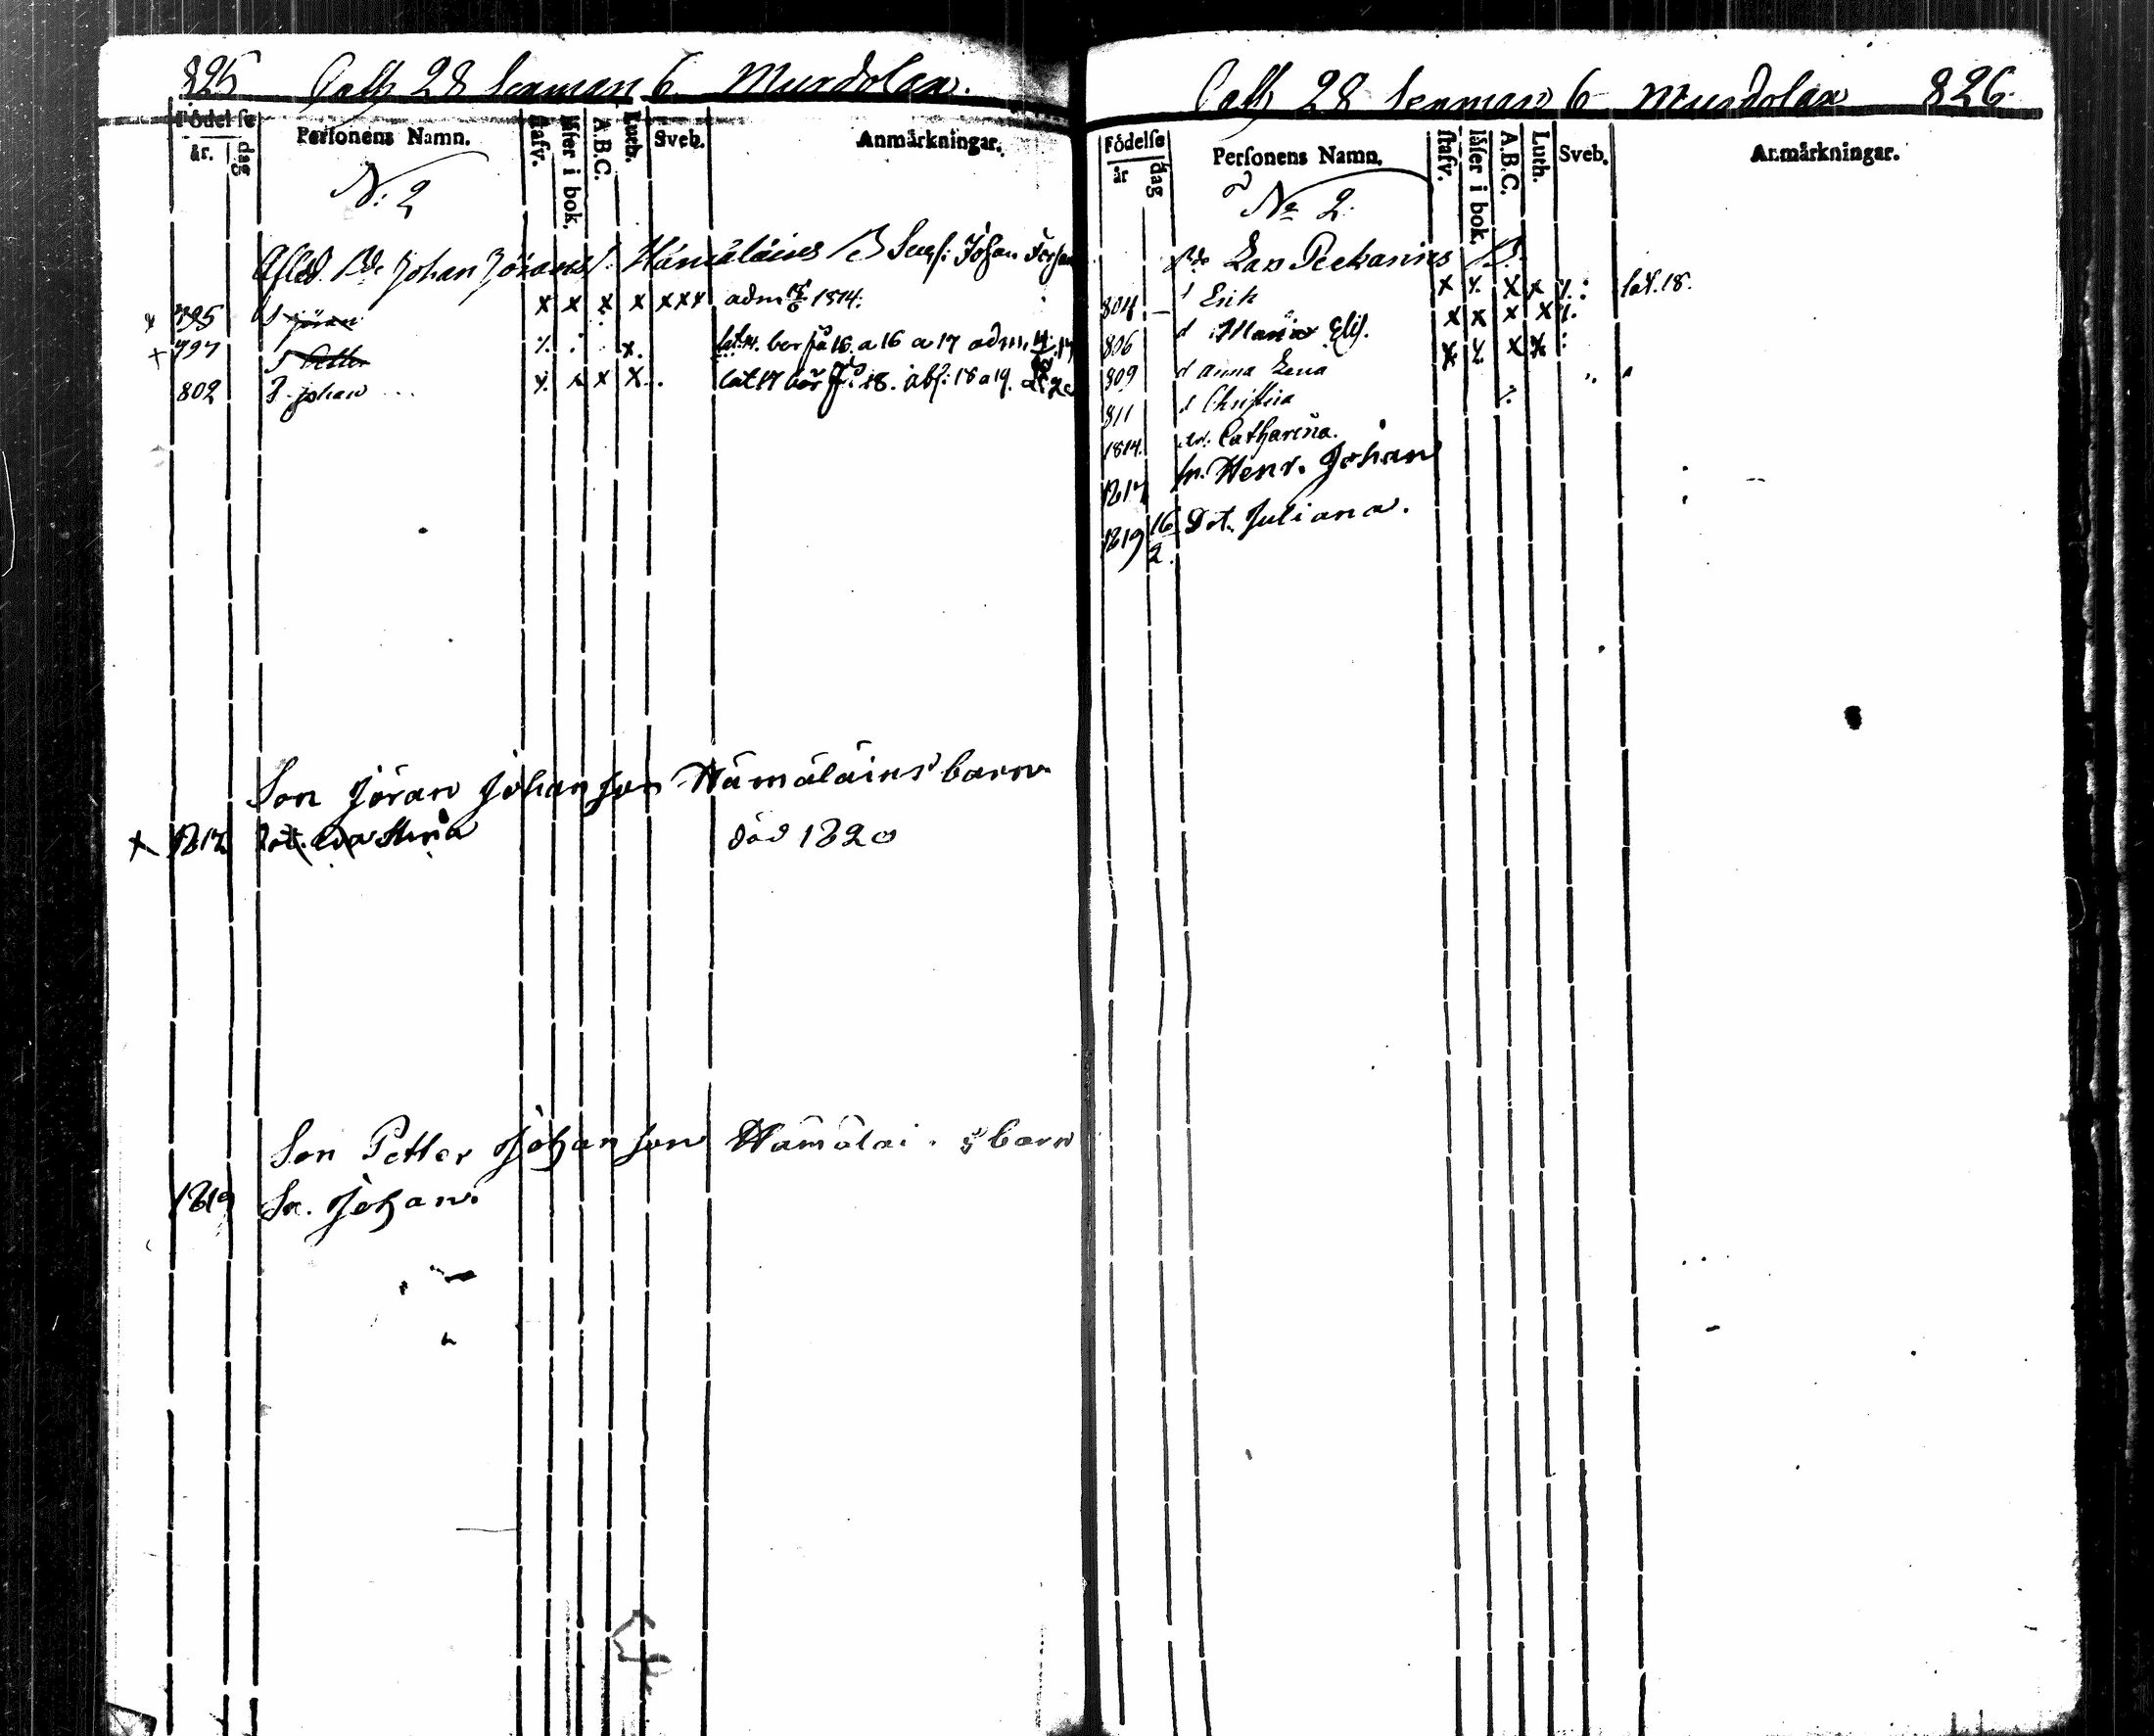 825 28 6 Murdolax.
Födelse
år. dag
Personens Namn.
stafv.
läser i bok.
A.B.C.
Luth.
Sveb.
Anmärkningar.
N: 2
Afled. Bd. Johan Jörans Hämäläines B Johan
795 S Jöran x x x x xxx adm 1814.
797 S Petter x. bör på 16 a 16 a 17 adm.
802 S. Johan x x lät 17 bör 18. abs: 18 a 19.
Son Jöran Johansson Hämäläins barn
1817 Dot. Eva Stina död 1820
Son Petter Johansson Hämäläi s barn
1819 Sn. Johan.
28 6 Murdolax 826.
Födelse
år dag
Personens Namn.
stafv.
läser i bok.
A.B.C.
Luth.
Sveb.
Anmärkningar.
No 2.
Bd. Lars Peckarines B.
804 s Erik x x x lät. 18.
806 d Maria Elis. x x x x
809 d Anna Lena x x x
811 d Christina
1814. Catharina.
1817 Sn. Henr. Johan
1819 16/2. Dot. Juliana.